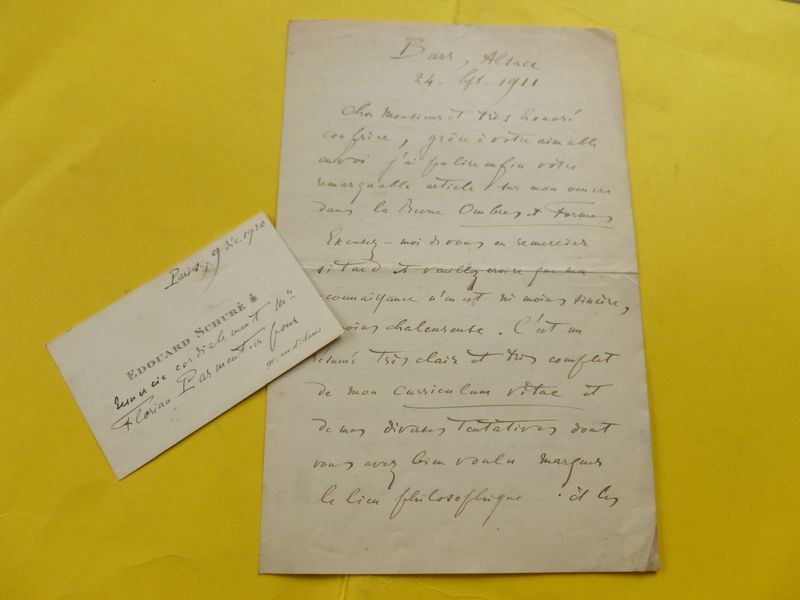 Barr, Alsace
24. Spt. 1911
Cher Monsieur et très honoré
confrère, grâce à votre aimable
envoi j'ai pu lire enfin votre
remarquable article sur mon œuvre
dans la Revue Ombres et Formes
Excusez-moi de vous en remercier
si tard et veuillez croire que ma
reconnaissance n'en est ni moins sincère,
moins chaleureuse. C'est un
résumé très clair et très complet
de mon curriculum vitae et
de mes diverses tentatives dont
vous avez bien voulu marquer
le lien philosophique et les
Paris, 9 déc. 1920
EDOUARD SCHURÉ
remercie cordialement Mr
Florian Parmentier pour
90, rue d'Assas